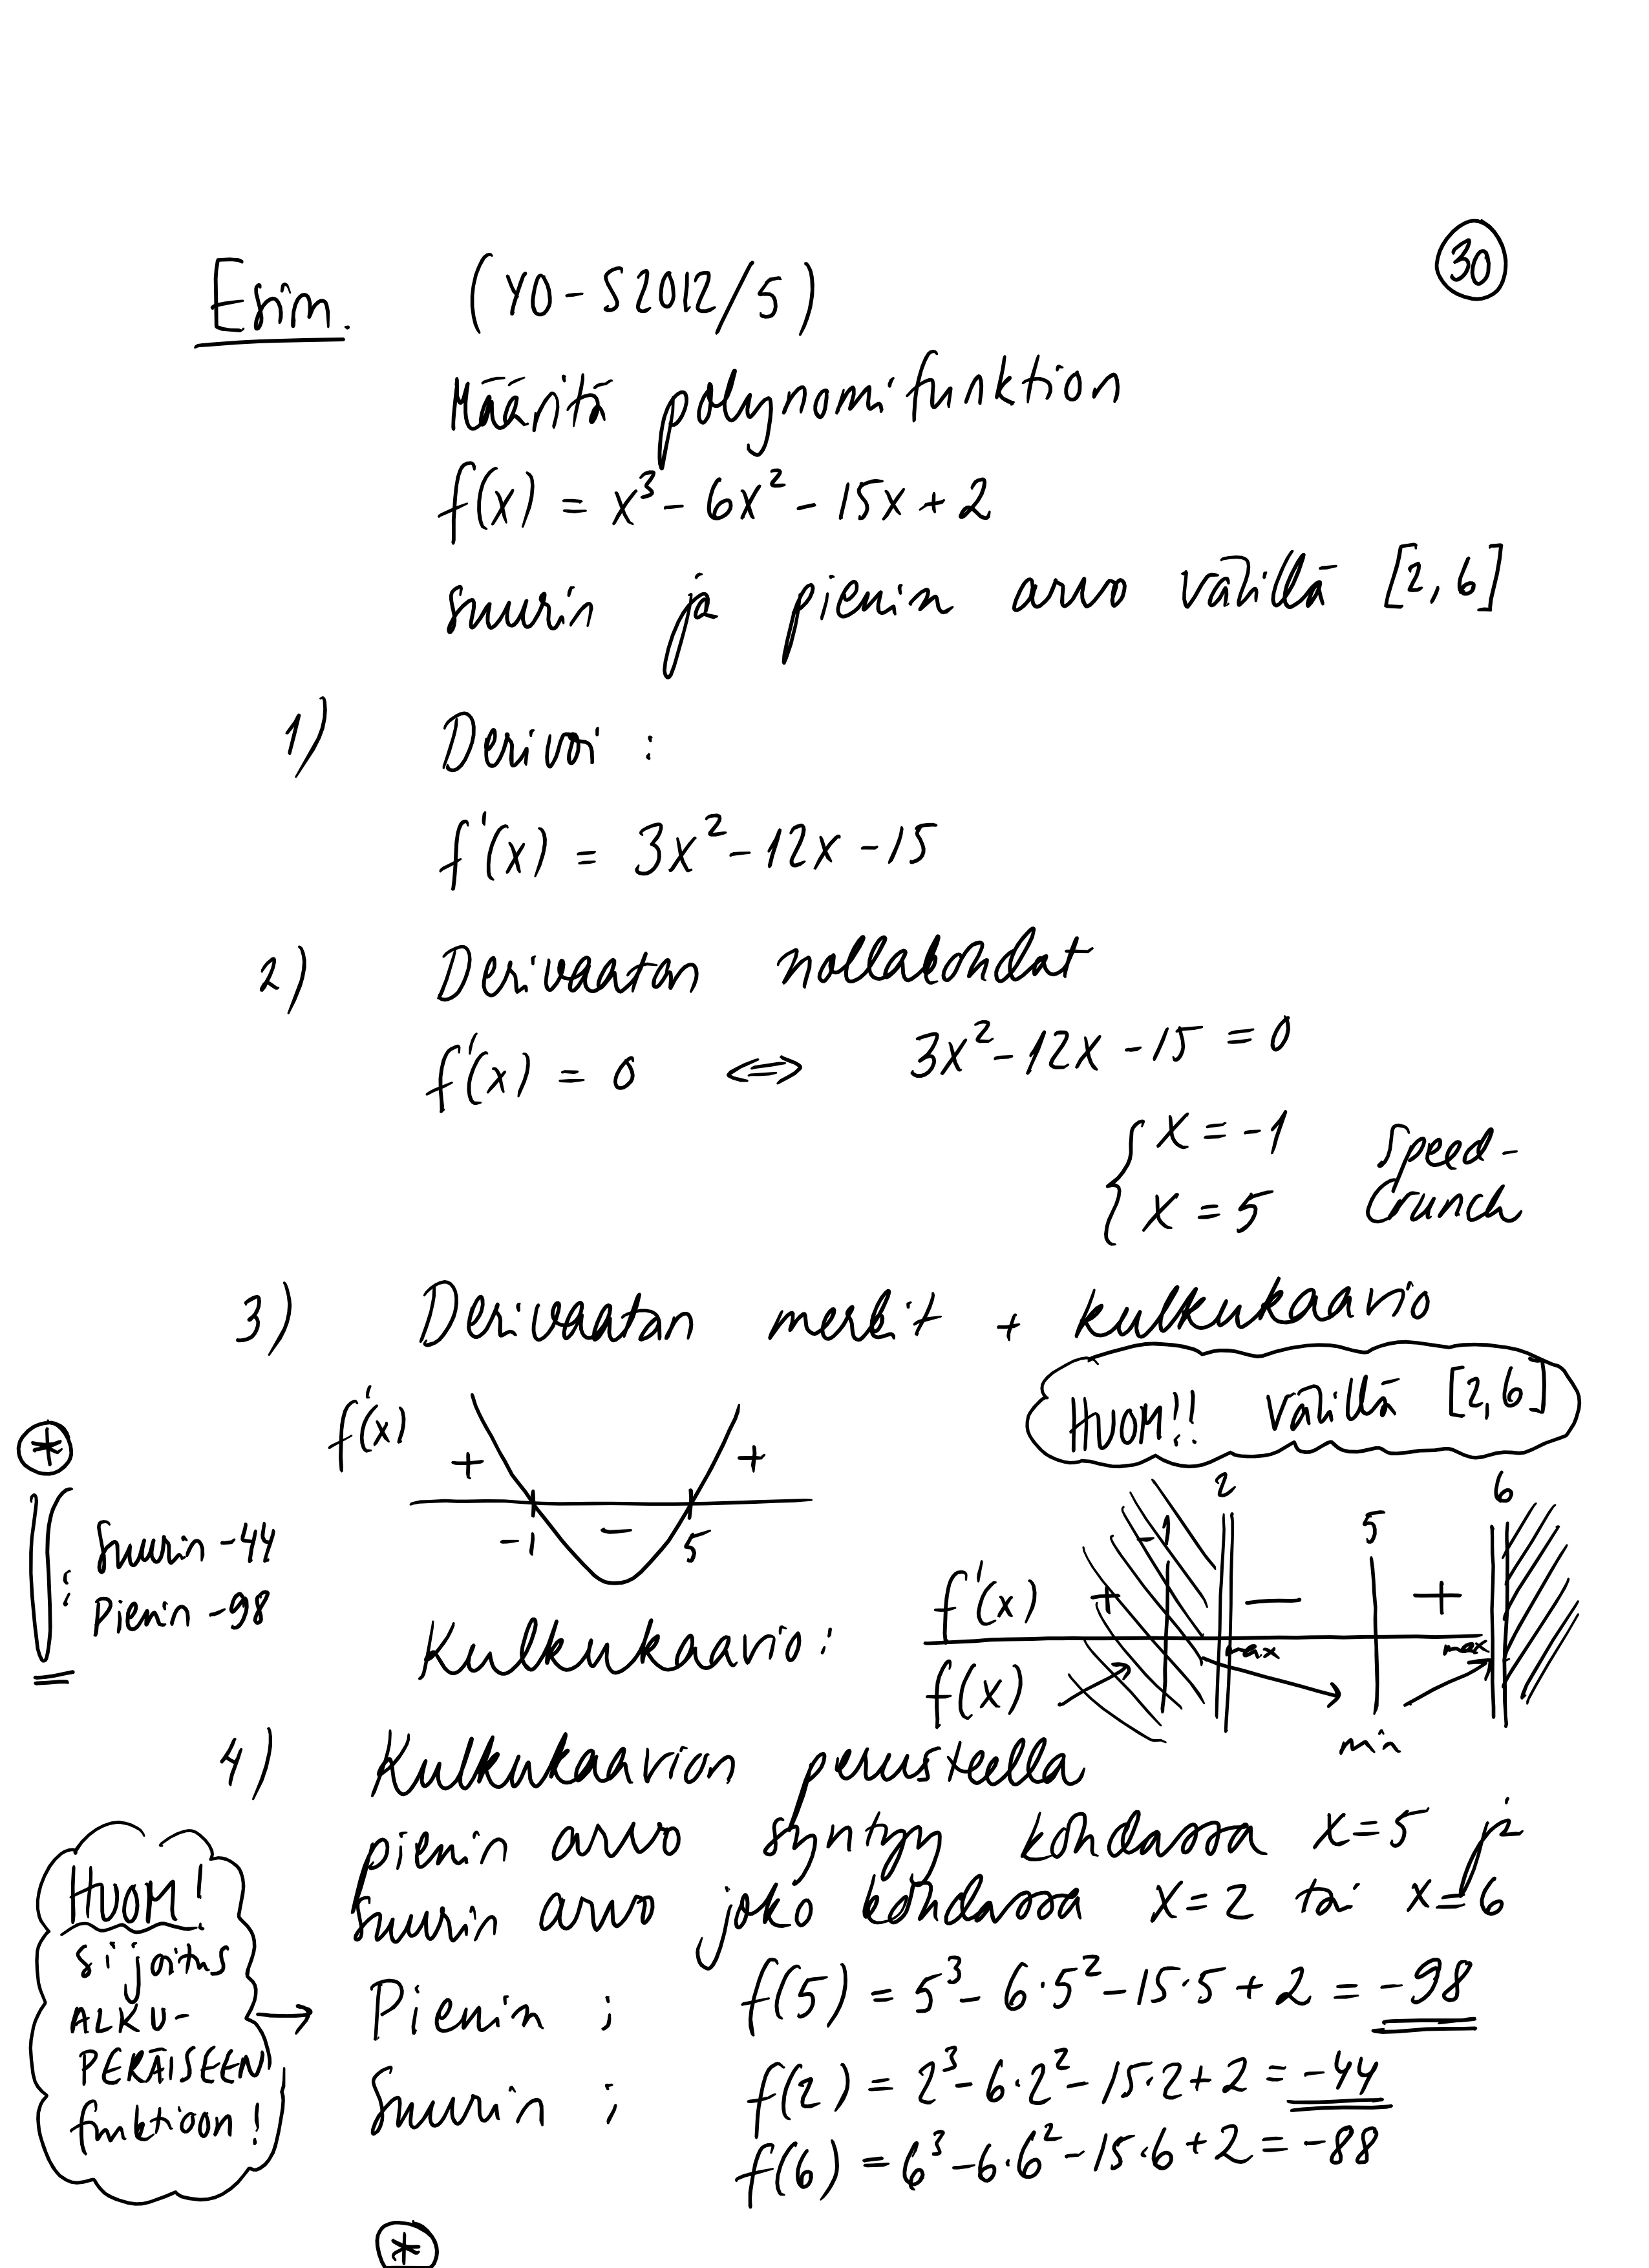 30
Esim. (YO - S2012/5)
Määritä polynomifunktion
f(x) = x³ - 6x² - 15x + 2
suurin ja pienin arvo välillä [2, 6]
1) Derivoi :
f'(x) = 3x² - 12x - 15
2) Derivaatan nollakohdat
f'(x) = 0 ⇔ 3x² - 12x - 15 = 0
{ x = -1
x = 5
Speed-
Crunch
3) Derivaatan merkit + kulkukaavio
HUOM!! välillä [2, 6]
f'(x) + - +
-1 5
*
V: Suurin -44
Pienin -98
Kulkukaavio:
-1 2 5 6
f'(x) + - +
f(x) max min max
4) Kulkukaavion perusteella
pienin arvo syntyy kohdassa x=5 ja
suurin arvo joko kohdassa x=2 tai x=6
HUOM!
sijoitus
ALKU-
PERÄISEEN
funktioon!
→ Pienin ; f(5) = 5³ - 6·5² - 15·5 + 2 = -98
Suurin ; f(2) = 2³ - 6·2² - 15·2 + 2 = -44
f(6) = 6³ - 6·6² - 15·6 + 2 = -88
*